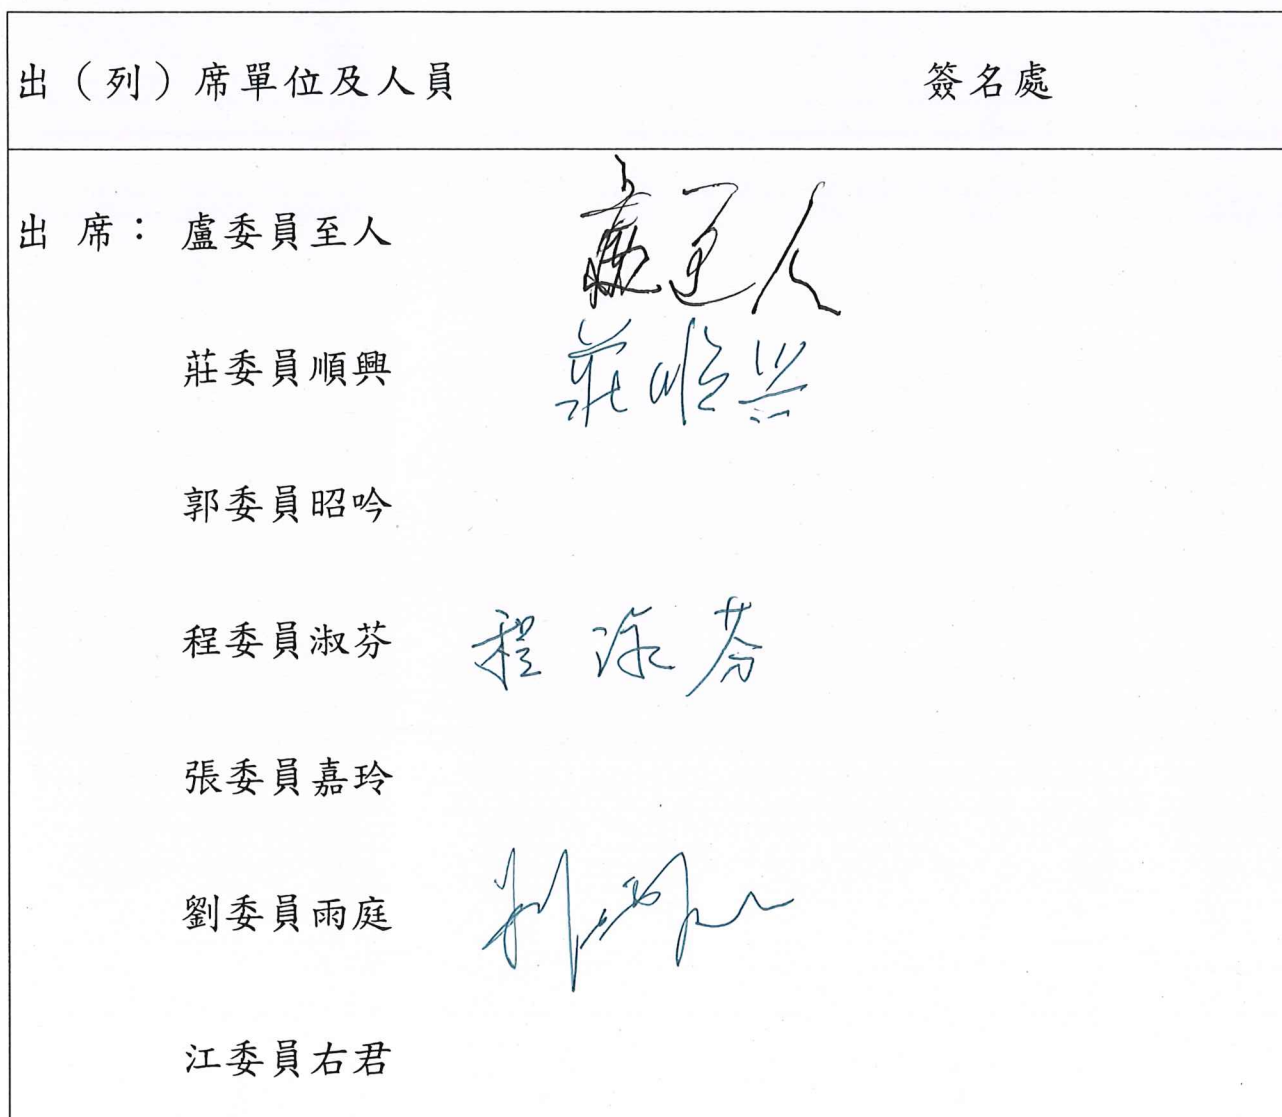 出（列）席單位及人員 簽名處
出 席： 盧委員至人 盧至人
莊委員順興 莊順兴
郭委員昭吟
程委員淑芬 程淑芬
張委員嘉玲
劉委員雨庭
江委員右君